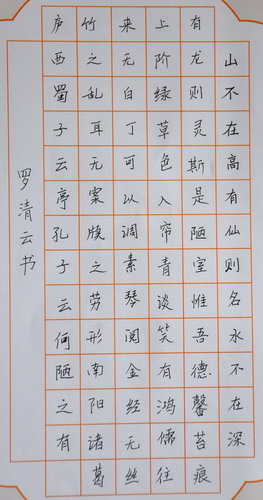 山不在高有仙则名水不在深
有龙则灵斯是陋室惟吾德馨苔痕
上阶绿草色入帘青谈笑有鸿儒往
来无白丁可以调素琴阅金经无丝
竹之乱耳无案牍之劳形南阳诸葛
庐西蜀子云亭孔子云何陋之有
罗清云书